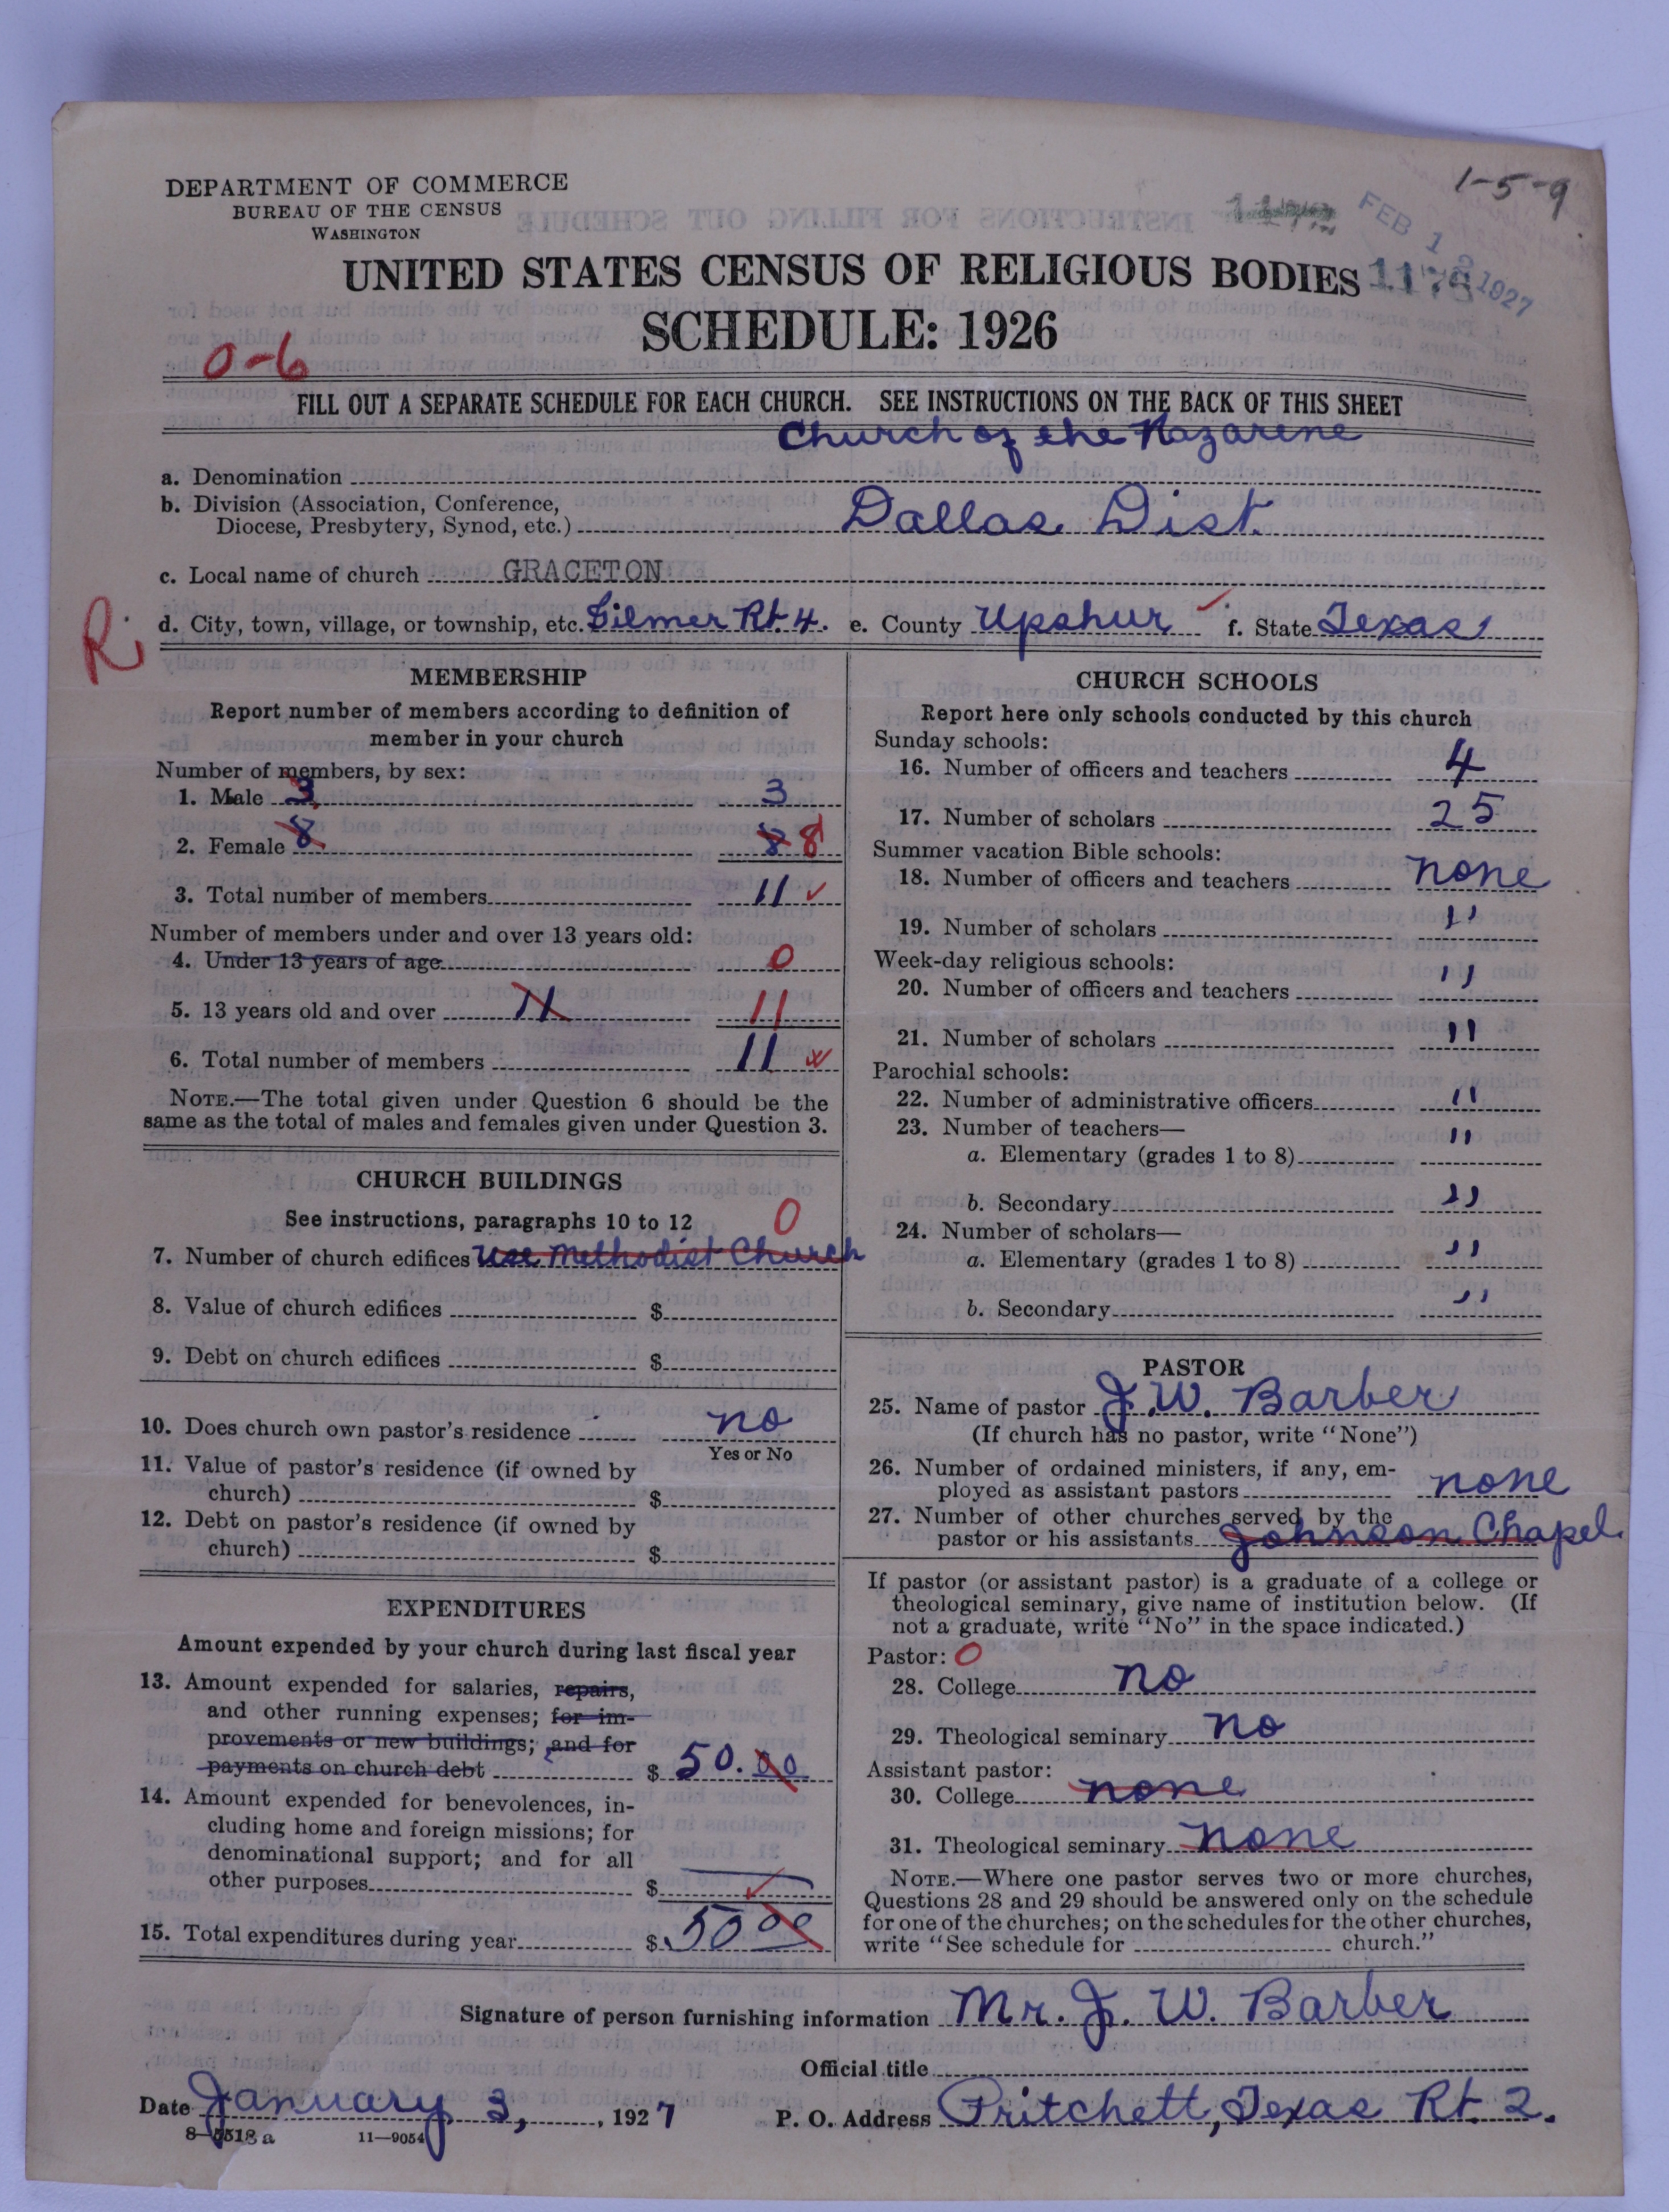 1-5-9
DEPARTMENT OF COMMERCE
BUREAU OF THE CENSUS
WASHINGTON
FEB 1 1927
UNITED STATES CENSUS OF RELIGIOUS BODIES
SCHEDULE: 1926
0-6
FILL OUT A SEPARATE SCHEDULE FOR EACH CHURCH. SEE INSTRUCTIONS ON THE BACK OF THIS SHEET
Church of the Nazarene
a. Denomination
b. Division (Association, Conference,
Diocese, Presbytery, Synod, etc.) Dallas Dist.
c. Local name of church GRACETON
d. City, town, village, or township, etc. Gilmer Rt. 4. e. County Upshur f. State Texas
R
MEMBERSHIP
Report number of members according to definition of
member in your church
Number of members, by sex:
1. Male 3 3
2. Female 8 8 8
3. Total number of members 11
Number of members under and over 13 years old:
4. Under 13 years of age 0
5. 13 years old and over 11 11
6. Total number of members 11
NOTE.—The total given under Question 6 should be the
same as the total of males and females given under Question 3.
CHURCH BUILDINGS
See instructions, paragraphs 10 to 12 0
7. Number of church edifices Use Methodist Church
8. Value of church edifices $
9. Debt on church edifices $
10. Does church own pastor's residence no
Yes or No
11. Value of pastor's residence (if owned by
church) $
12. Debt on pastor's residence (if owned by
church) $
EXPENDITURES
Amount expended by your church during last fiscal year
13. Amount expended for salaries, repairs,
and other running expenses; for im-
provements or new buildings; and for
payments on church debt $ 50.00
14. Amount expended for benevolences, in-
cluding home and foreign missions; for
denominational support; and for all
other purposes $
15. Total expenditures during year $ 50 00
CHURCH SCHOOLS
Report here only schools conducted by this church
Sunday schools:
16. Number of officers and teachers 4
17. Number of scholars 25
Summer vacation Bible schools:
18. Number of officers and teachers none
19. Number of scholars "
Week-day religious schools:
20. Number of officers and teachers "
21. Number of scholars "
Parochial schools:
22. Number of administrative officers "
23. Number of teachers—
a. Elementary (grades 1 to 8) "
b. Secondary "
24. Number of scholars—
a. Elementary (grades 1 to 8) "
b. Secondary "
PASTOR
25. Name of pastor J. W. Barber
(If church has no pastor, write "None")
26. Number of ordained ministers, if any, em-
ployed as assistant pastors none
27. Number of other churches served by the
pastor or his assistants Johnson Chapel
If pastor (or assistant pastor) is a graduate of a college or
theological seminary, give name of institution below. (If
not a graduate, write "No" in the space indicated.)
Pastor: 0
28. College no
29. Theological seminary no
Assistant pastor:
30. College none
31. Theological seminary none
NOTE.—Where one pastor serves two or more churches,
Questions 28 and 29 should be answered only on the schedule
for one of the churches; on the schedules for the other churches,
write "See schedule for church."
Signature of person furnishing information Mr. J. W. Barber
Official title
Date January 3, 1927 P. O. Address Pritchett, Texas Rt. 2.
11—9054